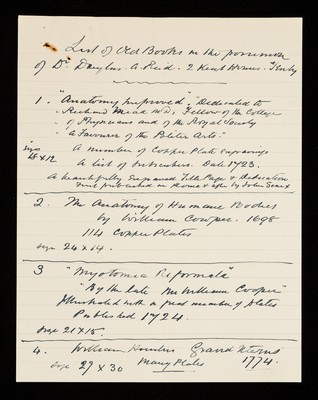 List of Old Books in the possession
of Dr. Douglas A. Reid. 2 Kent House. Tenby
1. "Anatomy Improved", "Dedicated to
Richard Mead M.D., Fellow of the College
of Physicians and of the Royal Society
& a Favourer of the Politer Arts"
A number of Copper Plate Engravings
size
18 x 12
A list of subscribers. Date 1723.
A beautifully Engraved Title Page & dedication
First published in Rome & after by John Senex
2. The Anatomy of Humane Bodies
by William Cowper. 1698
114 Copper Plates
size 24 x 14.
3 "Myotomia Reformata"
"By the late Mr William Cowper"
Illustrated with a great number of plates
Published 1724.
size 21 x 15.
4. William Hunter Gravid Uterus
size 27 x 30 Many Plates 1774.